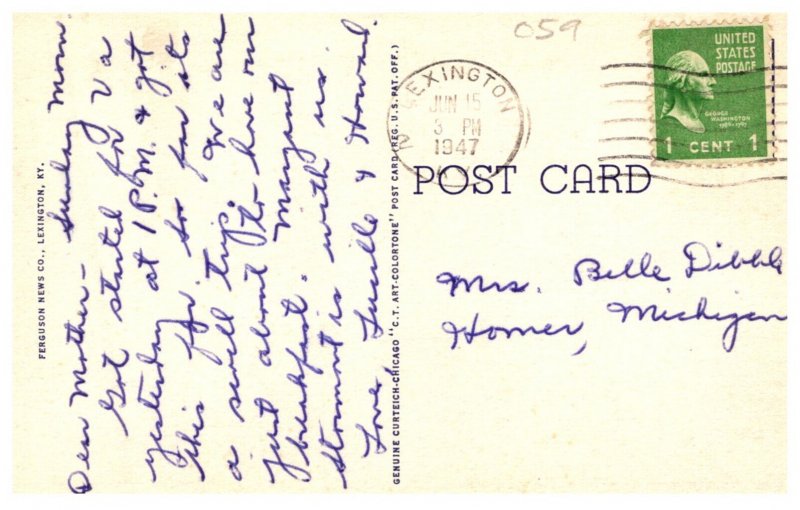 Dear Mother - Sunday Morn.
Got started for Va
yesterday at 1 P.M. & got
this far. So far its
a swell trip. We are
just about thr have our
breakfast. Margaret
Stormont is with us.
Love, Lucille & Howard.
FERGUSON NEWS CO., LEXINGTON, KY.
GENUINE CURTEICH-CHICAGO "C.T. ART-COLORTONE" POST CARD (REG. U.S. PAT. OFF.)
059
LEXINGTON
JUN 15
3 PM
1947
KY.
UNITED
STATES
POSTAGE
GEORGE
WASHINGTON
1789-1797
1 CENT 1
POST CARD
Mrs. Belle Dibble
Homer, Michigan